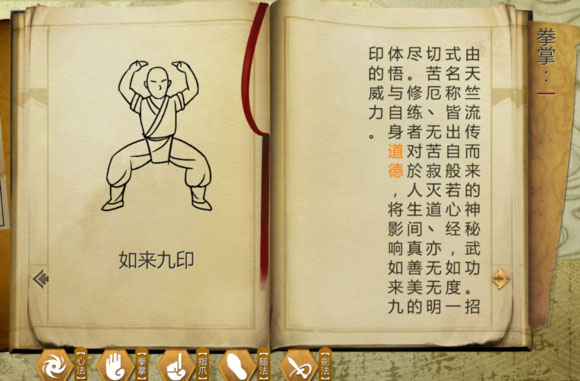 拳掌：一
由天竺流传而来的神秘武功。招
式名称皆出自般若心经，如度一
切苦厄、无苦寂灭道、亦无无明
尽。修练者对於人生间真善美的
体悟与自身道德，将影响如来九
印的威力。
如来九印
心法
拳掌
指爪
腿法